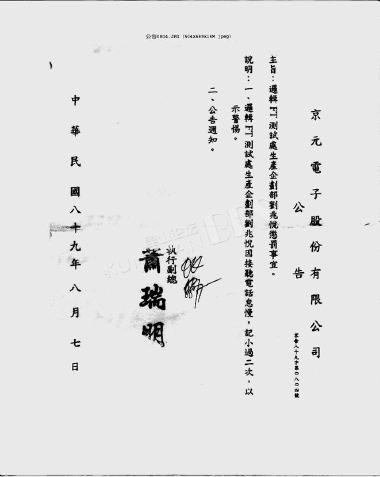 公告0804.JPG (904X889X16M jpeg)
京元電子股份有限公司
公告
京告八十九字第〇八〇四號
主旨：邏輯FT測試處生產企劃部劉兆悅懲罰事宜。
說明：一、邏輯FT測試處生產企劃部劉兆悅因接聽電話怠慢，記小過二次，以
示警惕。
二、公告週知。
執行副總
蕭瑞明
中華民國八十九年八月七日